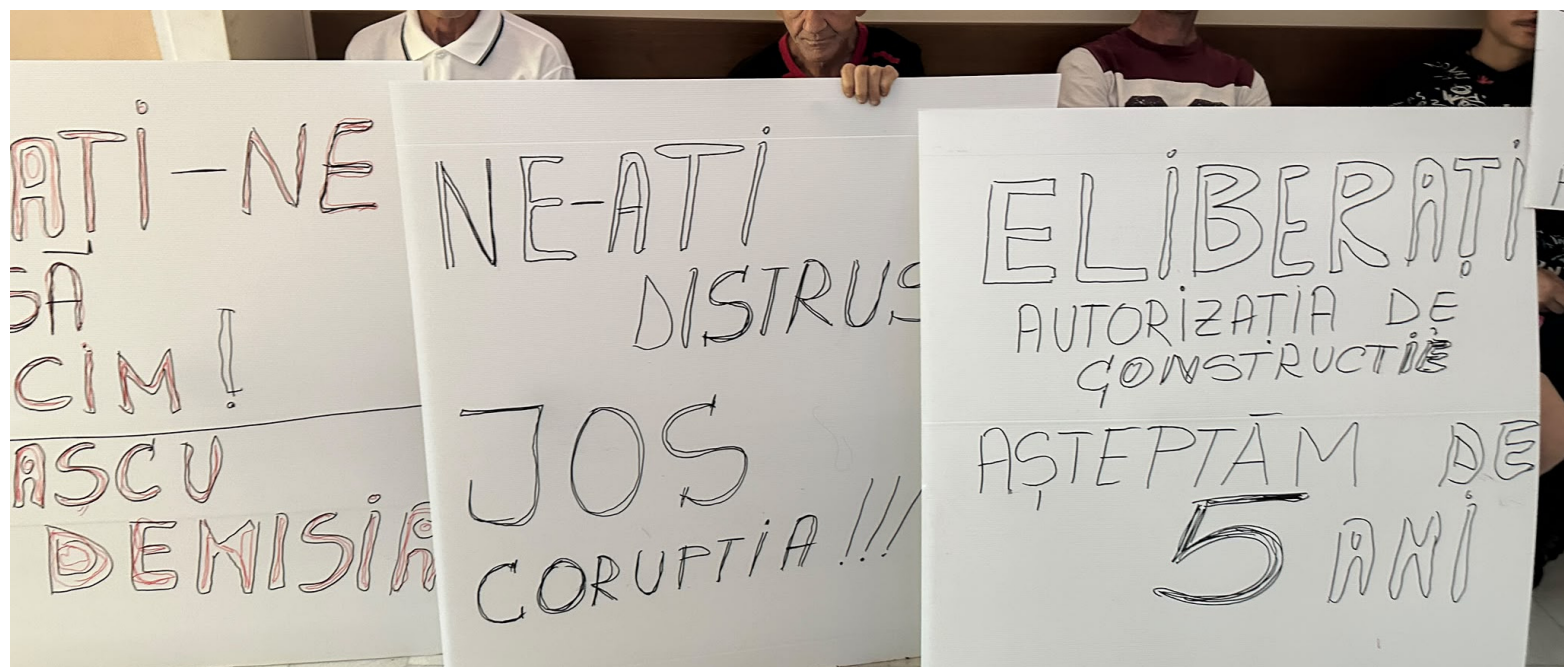 ATI-NE
SĂ
CIM!
ASCU
DEMISIA
NE-ATI
DISTRUS
JOS
CORUPTIA!!!
ELIBERAȚI
AUTORIZAȚIA DE
CONSTRUCTIE
AȘTEPTĂM DE
5 ANI